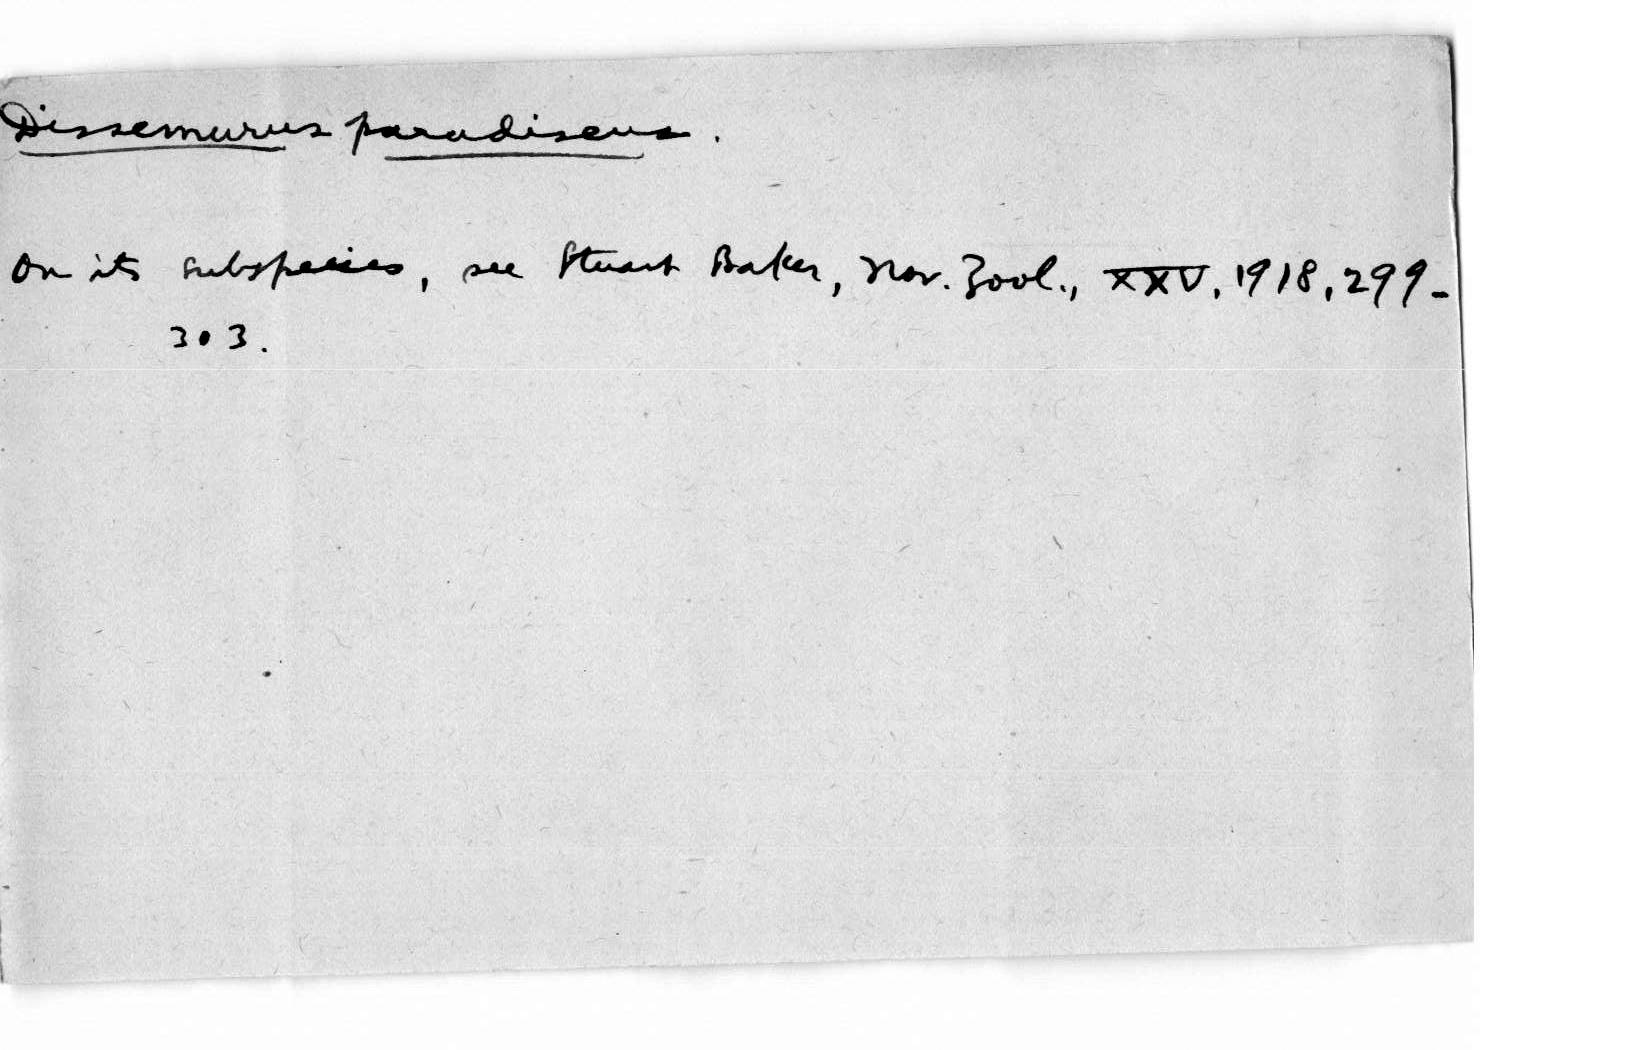 Dissemurus paradiseus.
On its subspecies, see Stuart Baker, Nov. Zool., XXV, 1918, 299-
303.